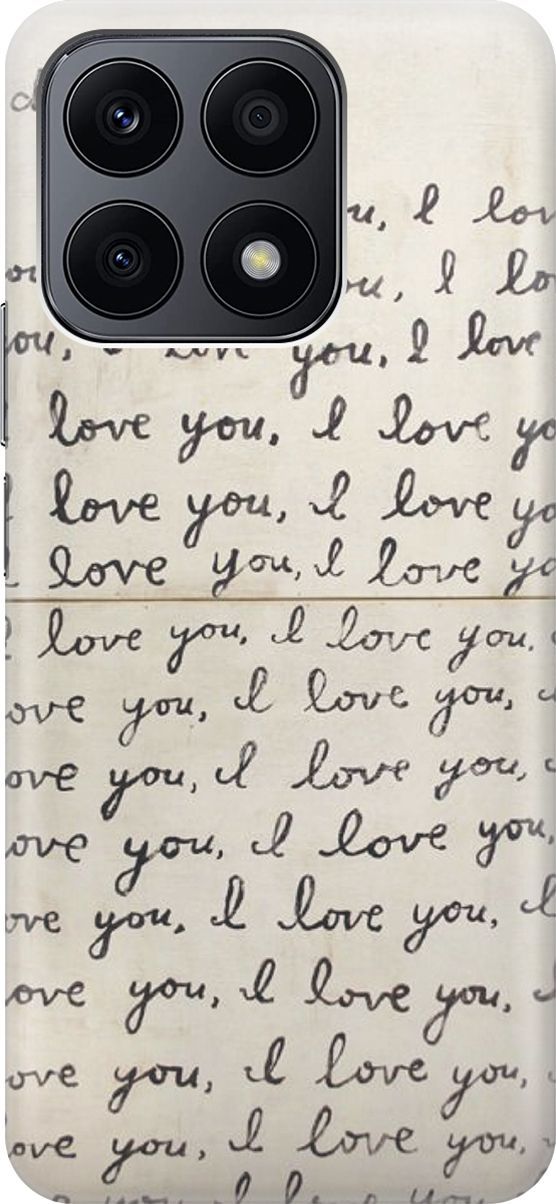 u, I lov
ou, I lo
you, I love you, I love
I love you, I love yo
I love you, I love yo
I love you, I love yo
I love you, I love you,
ove you, I love you,
ove you, I love you,
ove you, I love you,
ove you, I love you, I
ove you, I love you, I
ove you, I love you,
ove you, I love you,
you, I love you